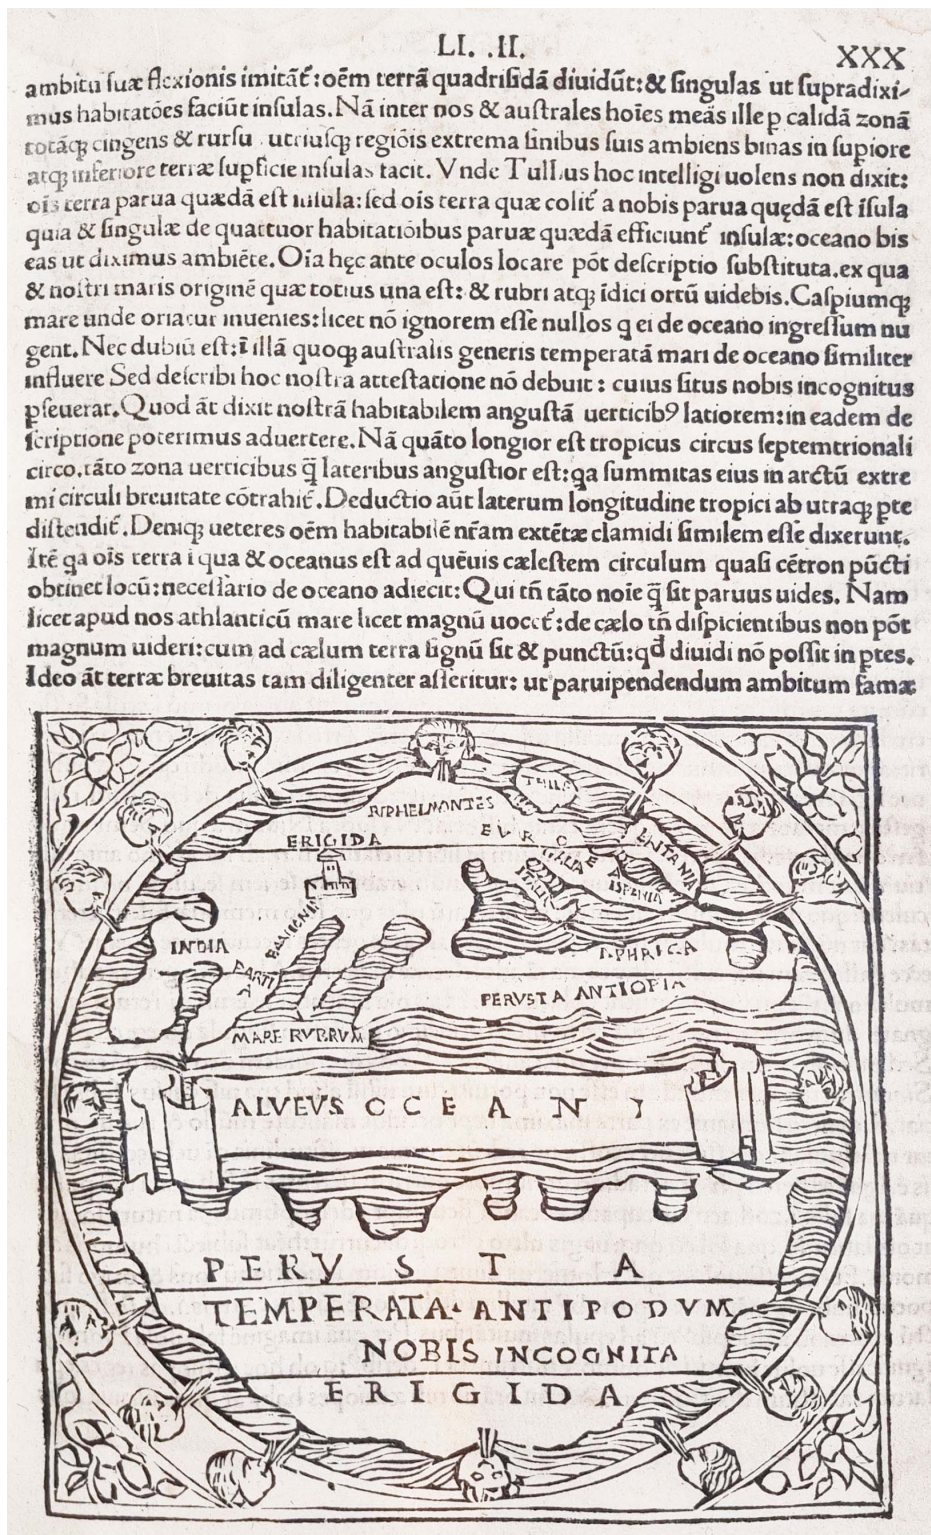 LI. .II.
XXX
ambitu suæ flexionis imitãt᷑: oẽm terrã quadrifidã diuidũt: & singulas ut supradixi-
mus habitatões faciũt insulas. Nã inter nos & australes hoĩes meãs ille p calidã zonã
totãq; cingens & rursu utriusq; regiõis extrema finibus suis ambiens binas in supiore
atq; inferiore terræ supficie insulas facit. Vnde Tullius hoc intelligi uolens non dixit:
oĩs terra parua quædã est insula: sed oĩs terra quæ colit᷑ a nobis parua quędã est ĩsula
quia & singulæ de quattuor habitatiõibus paruæ quædã efficiunt᷑ insulæ: oceano bis
eas ut diximus ambiẽte. Oĩa hęc ante oculos locare põt descriptio substituta. ex qua
& nostri maris originẽ quæ totius una est: & rubri atq; ĩdici ortũ uidebis. Caspiumq;
mare unde oriatur inuenies: licet nõ ignorem esse nullos q ei de oceano ingressum nu
gent. Nec dubiũ est: ĩ illã quoq; australis generis temperatã mari de oceano similiter
influere Sed describi hoc nostra attestatione nõ debuit: cuius situs nobis incognitus
pseuerat. Quod ãt dixit nostrã habitabilem angustã uerticib9 latiorem: in eadem de
scriptione poterimus aduertere. Nã quãto longior est tropicus circus septemtrionali
circo. tãto zona uerticibus q̃ lateribus angustior est: qa summitas eius in arctũ extre
mi circuli breuitate cõtrahit᷑. Deductio aũt laterum longitudine tropici ab utraq; pte
distendit᷑. Deniq; ueteres oẽm habitabilẽ nr̃am extẽtæ clamidi similem esse dixerunt.
Itẽ qa oĩs terra i qua & oceanus est ad quẽuis cælestem circulum quasi cẽtron pũcti
obtinet locũ: necessario de oceano adiecit: Qui tñ tãto noĩe q̃ sit paruus uides. Nam
licet apud nos athlanticũ mare licet magnũ uocet᷑: de cælo tñ dispicientibus non põt
magnum uideri: cum ad cælum terra signũ sit & punctũ: qd̃ diuidi nõ possit in ptes.
Ideo ãt terræ breuitas tam diligenter asseritur: ut paruipendendum ambitum famæ
RIPHEI MONTES
TILLE
FRIGIDA
EVROPE
ITALIA
HISPANIA
INDIA
PARTI
APHRICA
PERVSTA ANTIOPIA
MARE RVBRVM
ALVEVS OCEANI
PERVSTA
TEMPERATA · ANTIPODVM
NOBIS INCOGNITA
FRIGIDA